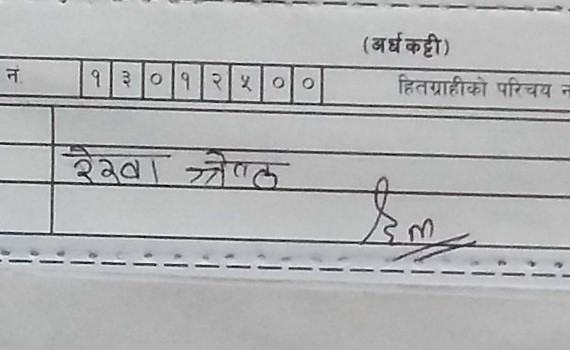 (अर्धकट्टी)
नं. १ ३ ० १ २ ५ ० ० हितग्राहीको परिचय न
रेखा